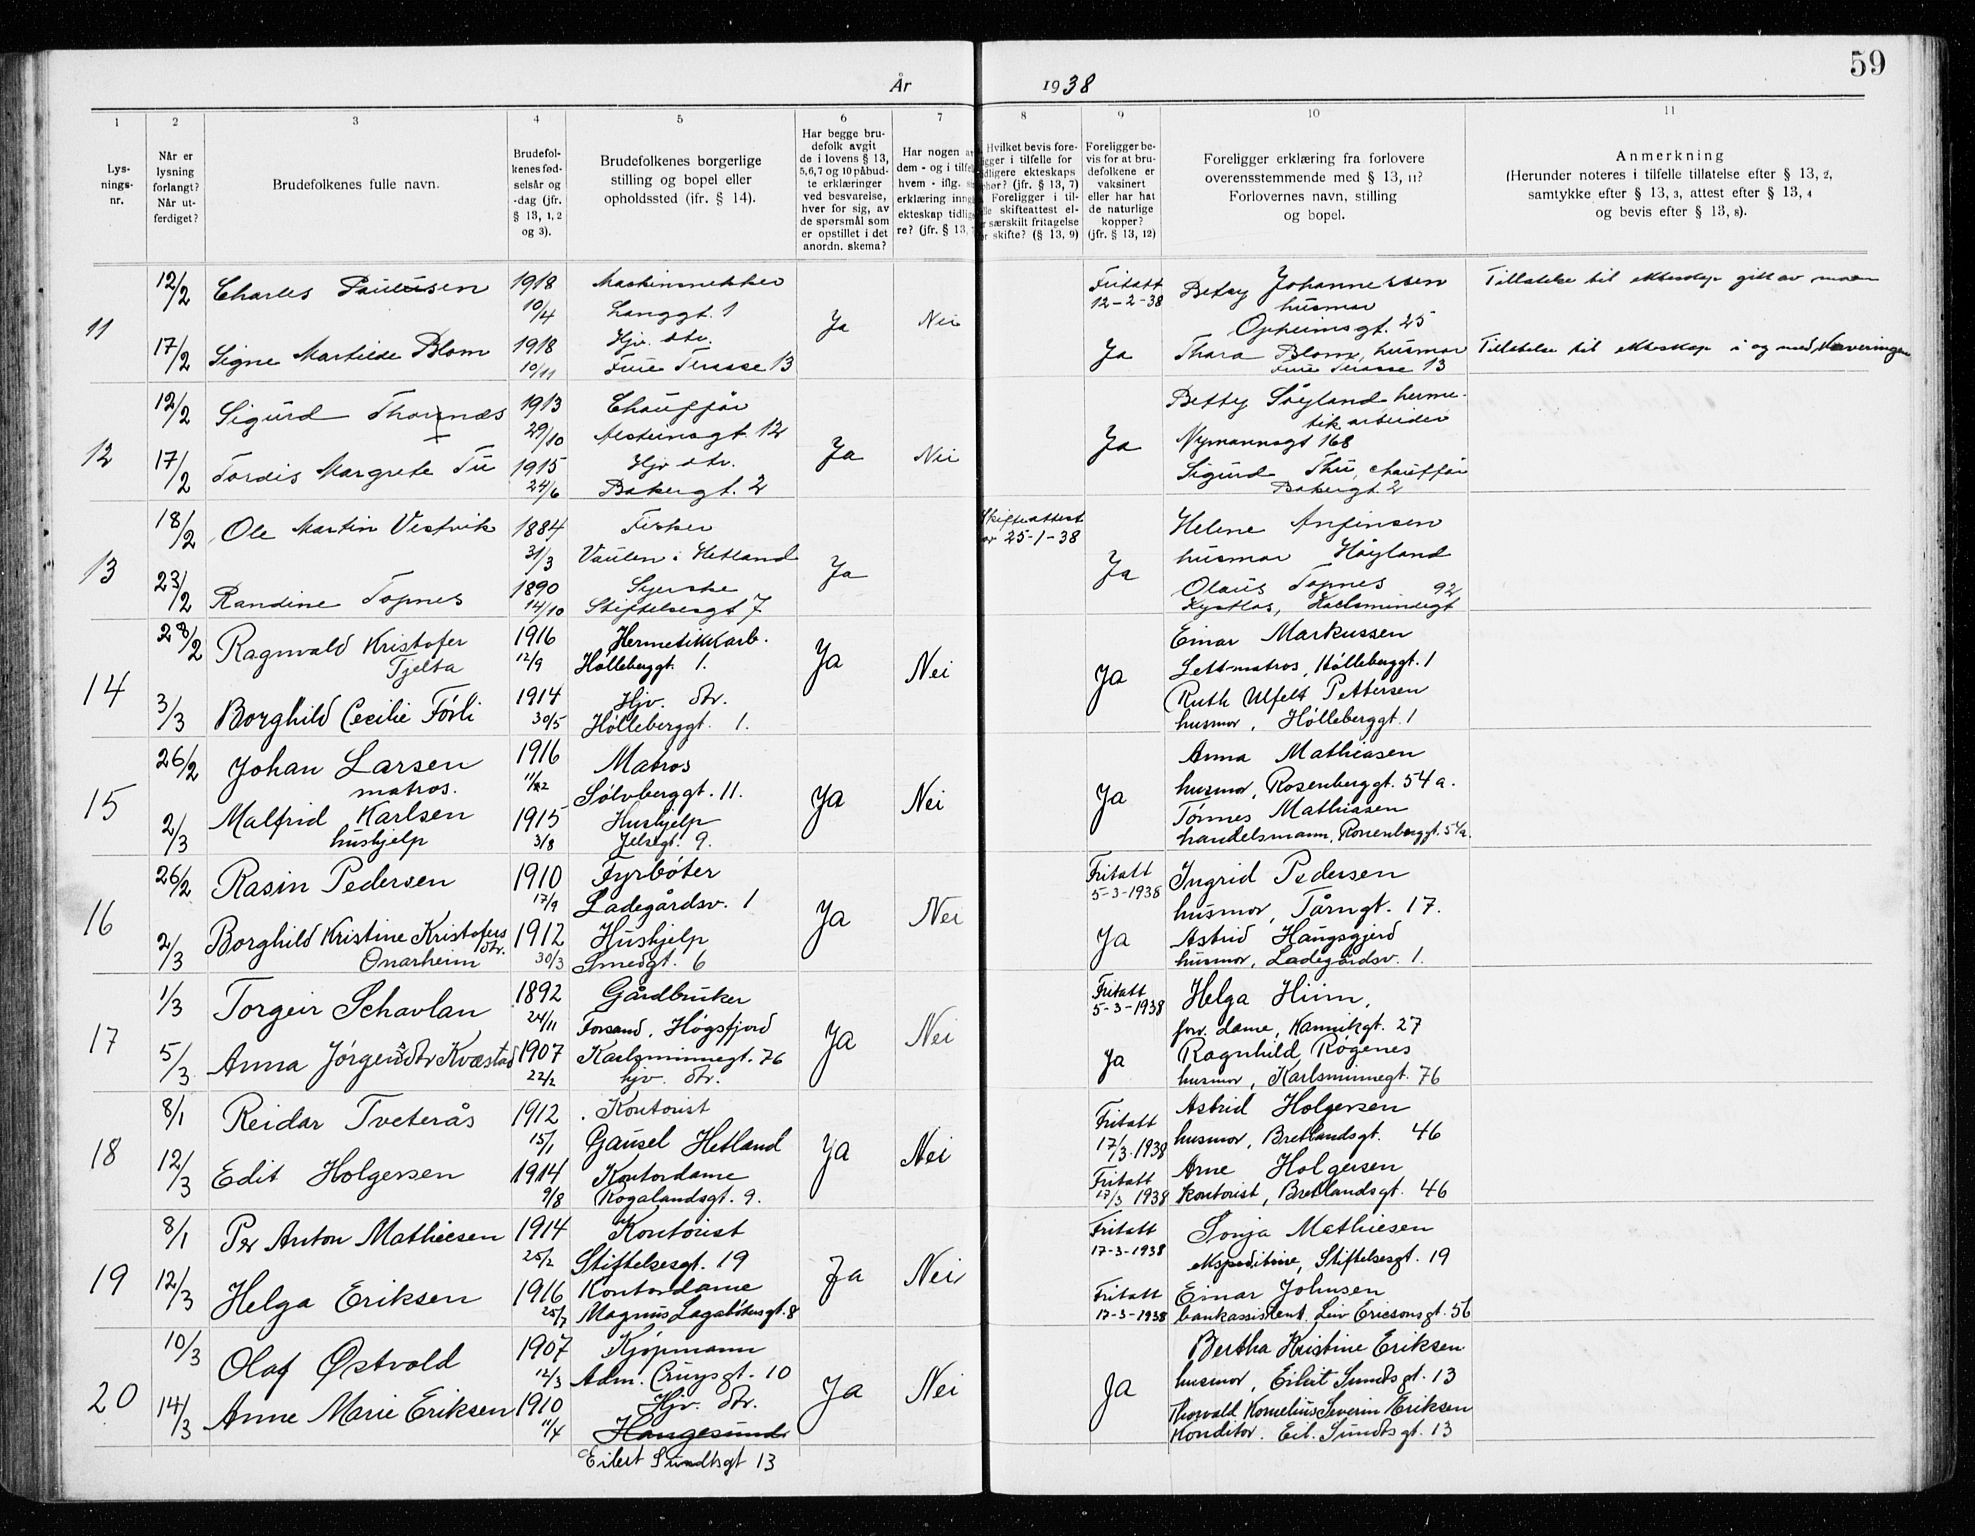 59
År 1938
1 2 3 4 5 6 7 8 9 10 11
Lys-
nings-
nr.
Når er
lysning
forlangt?
Når ut-
ferdiget?
Brudefolkenes fulle navn.
Brudefol-
kenes fød-
selsår og
-dag (jfr.
§ 13, 1, 2
og 3).
Brudefolkenes borgerlige
stilling og bopel eller
opholdssted (jfr. § 14).
Har begge bru-
defolk avgit
de i lovens § 13,
5,6,7 og 10 påbud-
te erklæringer
ved besvarelse,
hver for sig, av
de spørsmål som
er opstillet i det
anordn. skema?
Har nogen
dem - og i
hvem - iflg.
erklæring
ekteskap
re? (jfr. § 13,
Hvilket bevis fore-
ligger i tilfelle for
tidligere ekteskaps
ophør? (jfr. § 13, 7)
Foreligger i til-
skifteattest el-
særskilt fritagelse
skifte? (§ 13, 9)
Foreligger be-
vis for at bru-
defolkene er
vaksinert
eller har hat
de naturlige
kopper?
(jfr. § 13, 12)
Foreligger erklæring fra forlovere
overensstemmende med § 13, 11?
Forlovernes navn, stilling
og bopel.
Anmerkning
(Herunder noteres i tilfelle tillatelse efter § 13, 2,
samtykke efter § 13, 3, attest efter § 13, 4
og bevis efter § 13, 8).
11
12/2 Charles Paulusen 1918 Maskinsnekker Fritatt Betsy Johannessen Tillatelse til ekteskap gitt av moren
10/4 Langgt. 1 Ja Nei 12-2-38 husmor
Opheimsgt. 25
17/2 Signe Martilde Blom 1918 Hjv. dtr. Ja Thara Blom, husmor Tillatelse til ekteskap i og med
10/11 Fure Terasse 13 Fure Terasse 13
12
12/2 Sigurd Thornæs 1913 Chauffør Betty Søyland herme-
29/10 gt. 12 Ja Nei Ja tik arbeider
Nymannsgt 168
17/2 Tordis Margrete Tu 1915 Hjv dtr. Sigurd Thu, chauffør
24/6 Bakergt. 2 Bakergt. 2
13
18/2 Ole Martin Vestvik 1884 Fisker Skifteattest Helene Anfinsen
31/3 Vaulen i Hetland Ja av 25-1-38 Ja husmor Høyland
23/2 Randine Topnes 1890 Syerske Olaus Topnes 92
14/10 Stiftelsesgt 7 Karlsminnegt
14
28/2 Ragnvald Kristofer 1916 Hermetikkarb. Einar Markussen
Tjelta 12/9 Hølleberggt. 1. Ja Nei Ja Lettmatros, Hølleberggt. 1
3/3 Borghild Cecilie Førli 1914 Hjv. dtr. Ruth Ulfelt Pettersen
30/5 Hølleberggt. 1. husmor, Hølleberggt. 1
15
26/2 Johan Larsen 1916 Matros Anna Mathiasen
matros. Sølvberggt. 11. Ja Nei Ja husmor, Rosenberggt. 54a.
2/3 Malfrid Karlsen 1915 Hushjelp Tønnes Mathiasen
hushjelp 3/8 Jelsegt. 9. handelsmann, Rosenberggt. 54a.
16
26/2 Rasin Pedersen 1910 Fyrbøter Fritatt Ingrid Pedersen
17/9 Ladegårdsv. 1 Ja Nei 5-3-1938 husmor, Tårngt. 17.
2/3 Borghild Kristine Kristofers 1912 Hushjelp Ja Astrid Haugsgjerd
dtr. Onarheim 30/3 Smedgt. 6 husmor, Ladegårdsv. 1.
17
1/3 Torgeir Schavlan 1892 Gårdbruker Fritatt Helga Hiim,
24/11 Forsand, Høgsfjord Ja Nei 5-3-1938 forr. dame, Kannikgt. 27
5/3 Anna Jørgensdtr Kvæstad 1907 Karlsminnegt. 76 Ja Ragnhild Røgenes
22/2 hjv. dtr. husmor, Karlsminnegt. 76
18
8/1 Reidar Tveterås 1912 Kontorist Fritatt Astrid Holgersen
15/1 Gausel Hetland Ja Nei 17/3-1938 husmor, Bretlandsgt. 46
12/3 Edit Holgersen 1914 Kontordame Fritatt Arne Holgersen
9/8 Rogalandsgt. 9. 17/3 1938 kontorist, Bretlandsgt. 46
19
8/1 Per Anton Mathiesen 1914 Kontorist Fritatt Sonja Mathiesen
25/2 Stiftelsesgt. 19 Ja Nei 17-3-1938 ekspeditrise, Stiftelsesgt. 19
12/3 Helga Eriksen 1916 Kontordame Fritatt Einar Johnsen
25/7 Magnus Lagabøtersgt. 8 17-3-1938 bankassistent, Leiv Ericsonsgt. 56
20
10/3 Olaf Østvold 1907 Kjøpmann Bertha Kristine Eriksen
12/3 Adm. Cruysgt. 10 Ja Nei Ja husmor, Eilert Sundtsgt. 13
14/3 Anne Marie Eriksen 1910 Hjv. dtr. Thorvald Kornelius Severin Eriksen
Haugesund Konditor. Eil. Sundtsgt. 13
Eilert Sundtsgt 13